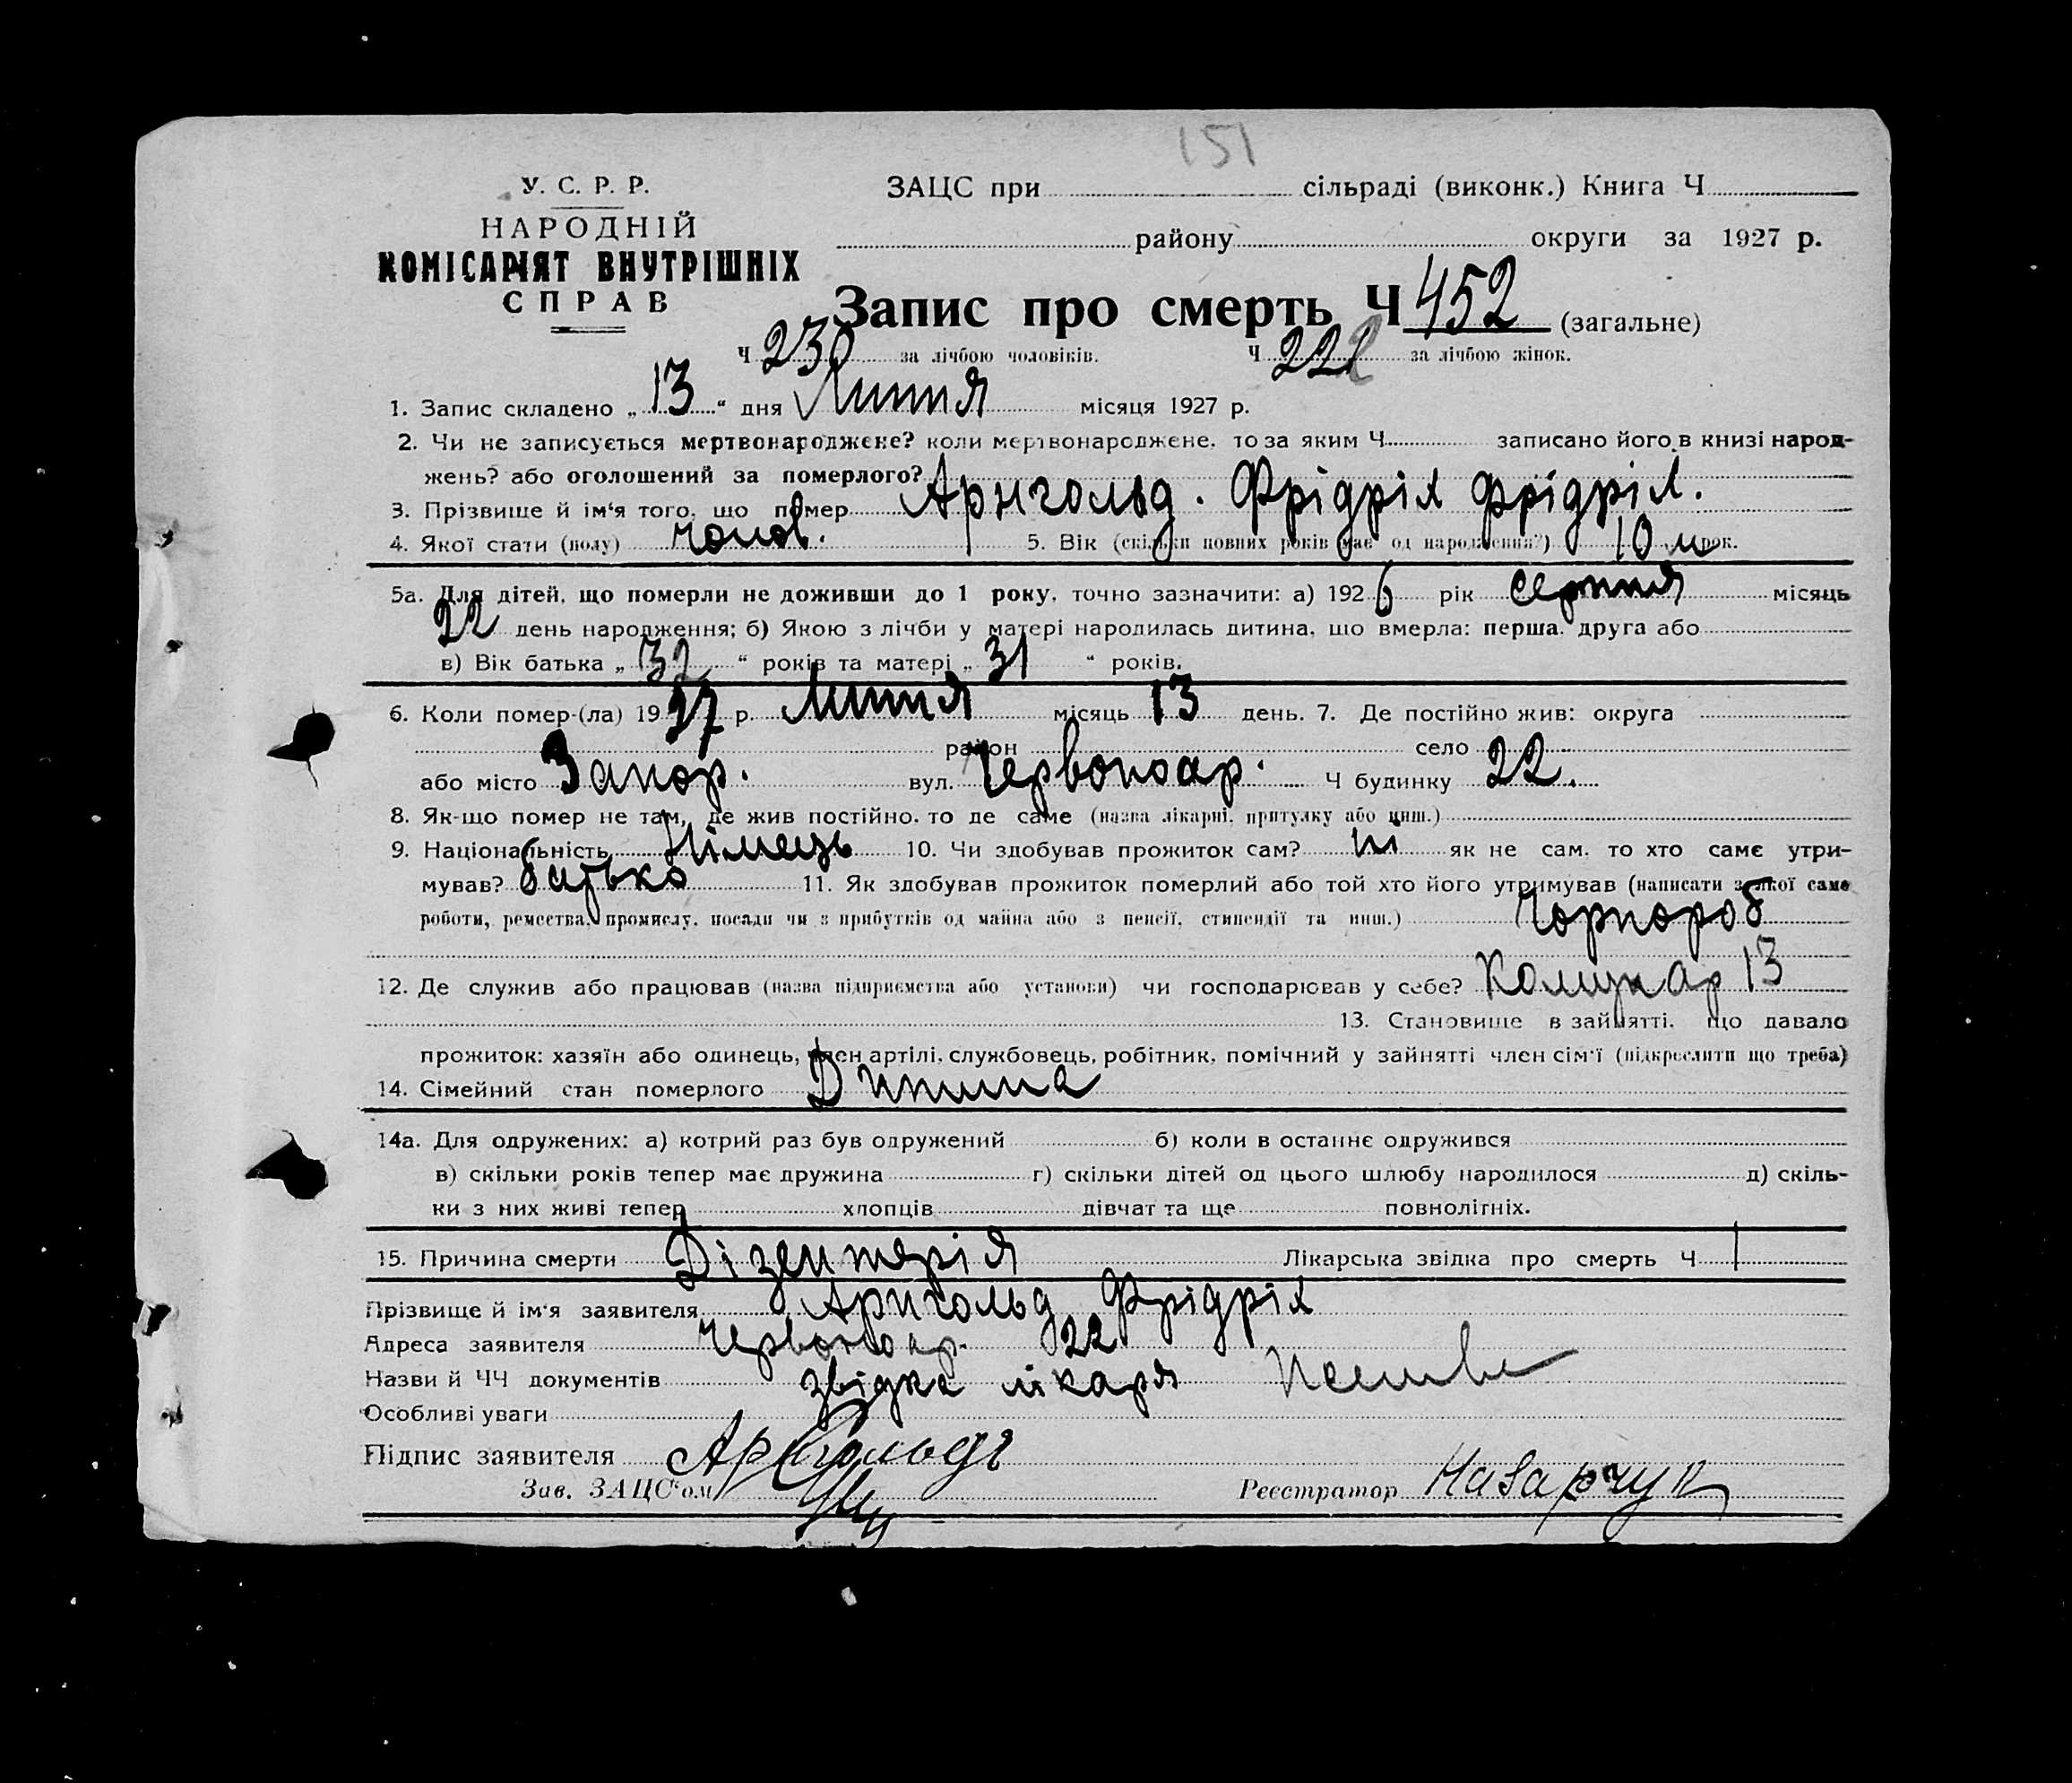 151
У. С. Р. Р.
НАРОДНІЙ
КОМІСАРІЯТ ВНУТРІШНІХ
СПРАВ
ЗАЦС при сільраді (виконк.) Книга Ч
району округи за 1927 р.
Запис про смерть Ч 452 (загальне)
Ч 230 за лічбою чоловіків. Ч 222 за лічбою жінок.
1. Запис складено „13“ дня Липня місяця 1927 р.
2. Чи не записується мертвонароджене? коли мертвонароджене, то за яким Ч записано його в книзі народ-
жень? або оголошений за померлого?
3. Прізвище й ім‘я того, що помер Арнгольд. Фрідріх Фрідріх.
4. Якої стати (полу) чолов. 5. Вік (скільки повних років має од народження?) 10 м рок.
5а. Для дітей, що померли не доживши до 1 року, точно зазначити: а) 1926 рік серпня місяць
22 день народження; б) Якою з лічби у матері народилась дитина, що вмерла: перша, друга або
в) Вік батька „32“ років та матері „31“ років.
6. Коли помер-(ла) 1927 р. Липня місяць 13 день. 7. Де постійно жив: округа
район село
або місто Запор. вул. Червоноар. Ч будинку 22.
8. Як-що помер не там, де жив постійно, то де саме (назва лікарні, притулку або инш.)
9. Національність Німець 10. Чи здобував прожиток сам? ні як не сам, то хто саме утри-
мував? батько 11. Як здобував прожиток померлий або той хто його утримував (написати з якої саме
роботи, ремества, промислу, посади чи з прибутків од майна або з пенсії, стипендії та инш.) Чорнороб
12. Де служив або працював (назва підприємства або установи) чи господарював у себе? Комунар 13
13. Становище в зайнятті, що давало
прожиток: хазяїн або одинець, член артілі, службовець, робітник, помічний у зайнятті член сім‘ї (підкреслити що треба)
14. Сімейний стан померлого Дитина
14а. Для одружених: а) котрий раз був одружений б) коли в останнє одружився
в) скільки років тепер має дружина г) скільки дітей од цього шлюбу народилося д) скіль-
ки з них живі тепер хлопців дівчат та ще повнолітніх.
15. Причина смерти Дізентерія Лікарська звідка про смерть Ч
Прізвище й ім‘я заявителя Арнгольд Фрідріх
Адреса заявителя Червоноар. 22
Назви й ЧЧ документів звідка лікаря
Особливі уваги
Підпис заявителя Арнгольдъ
Зав. ЗАЦС‘ом Реєстратор Назарчук